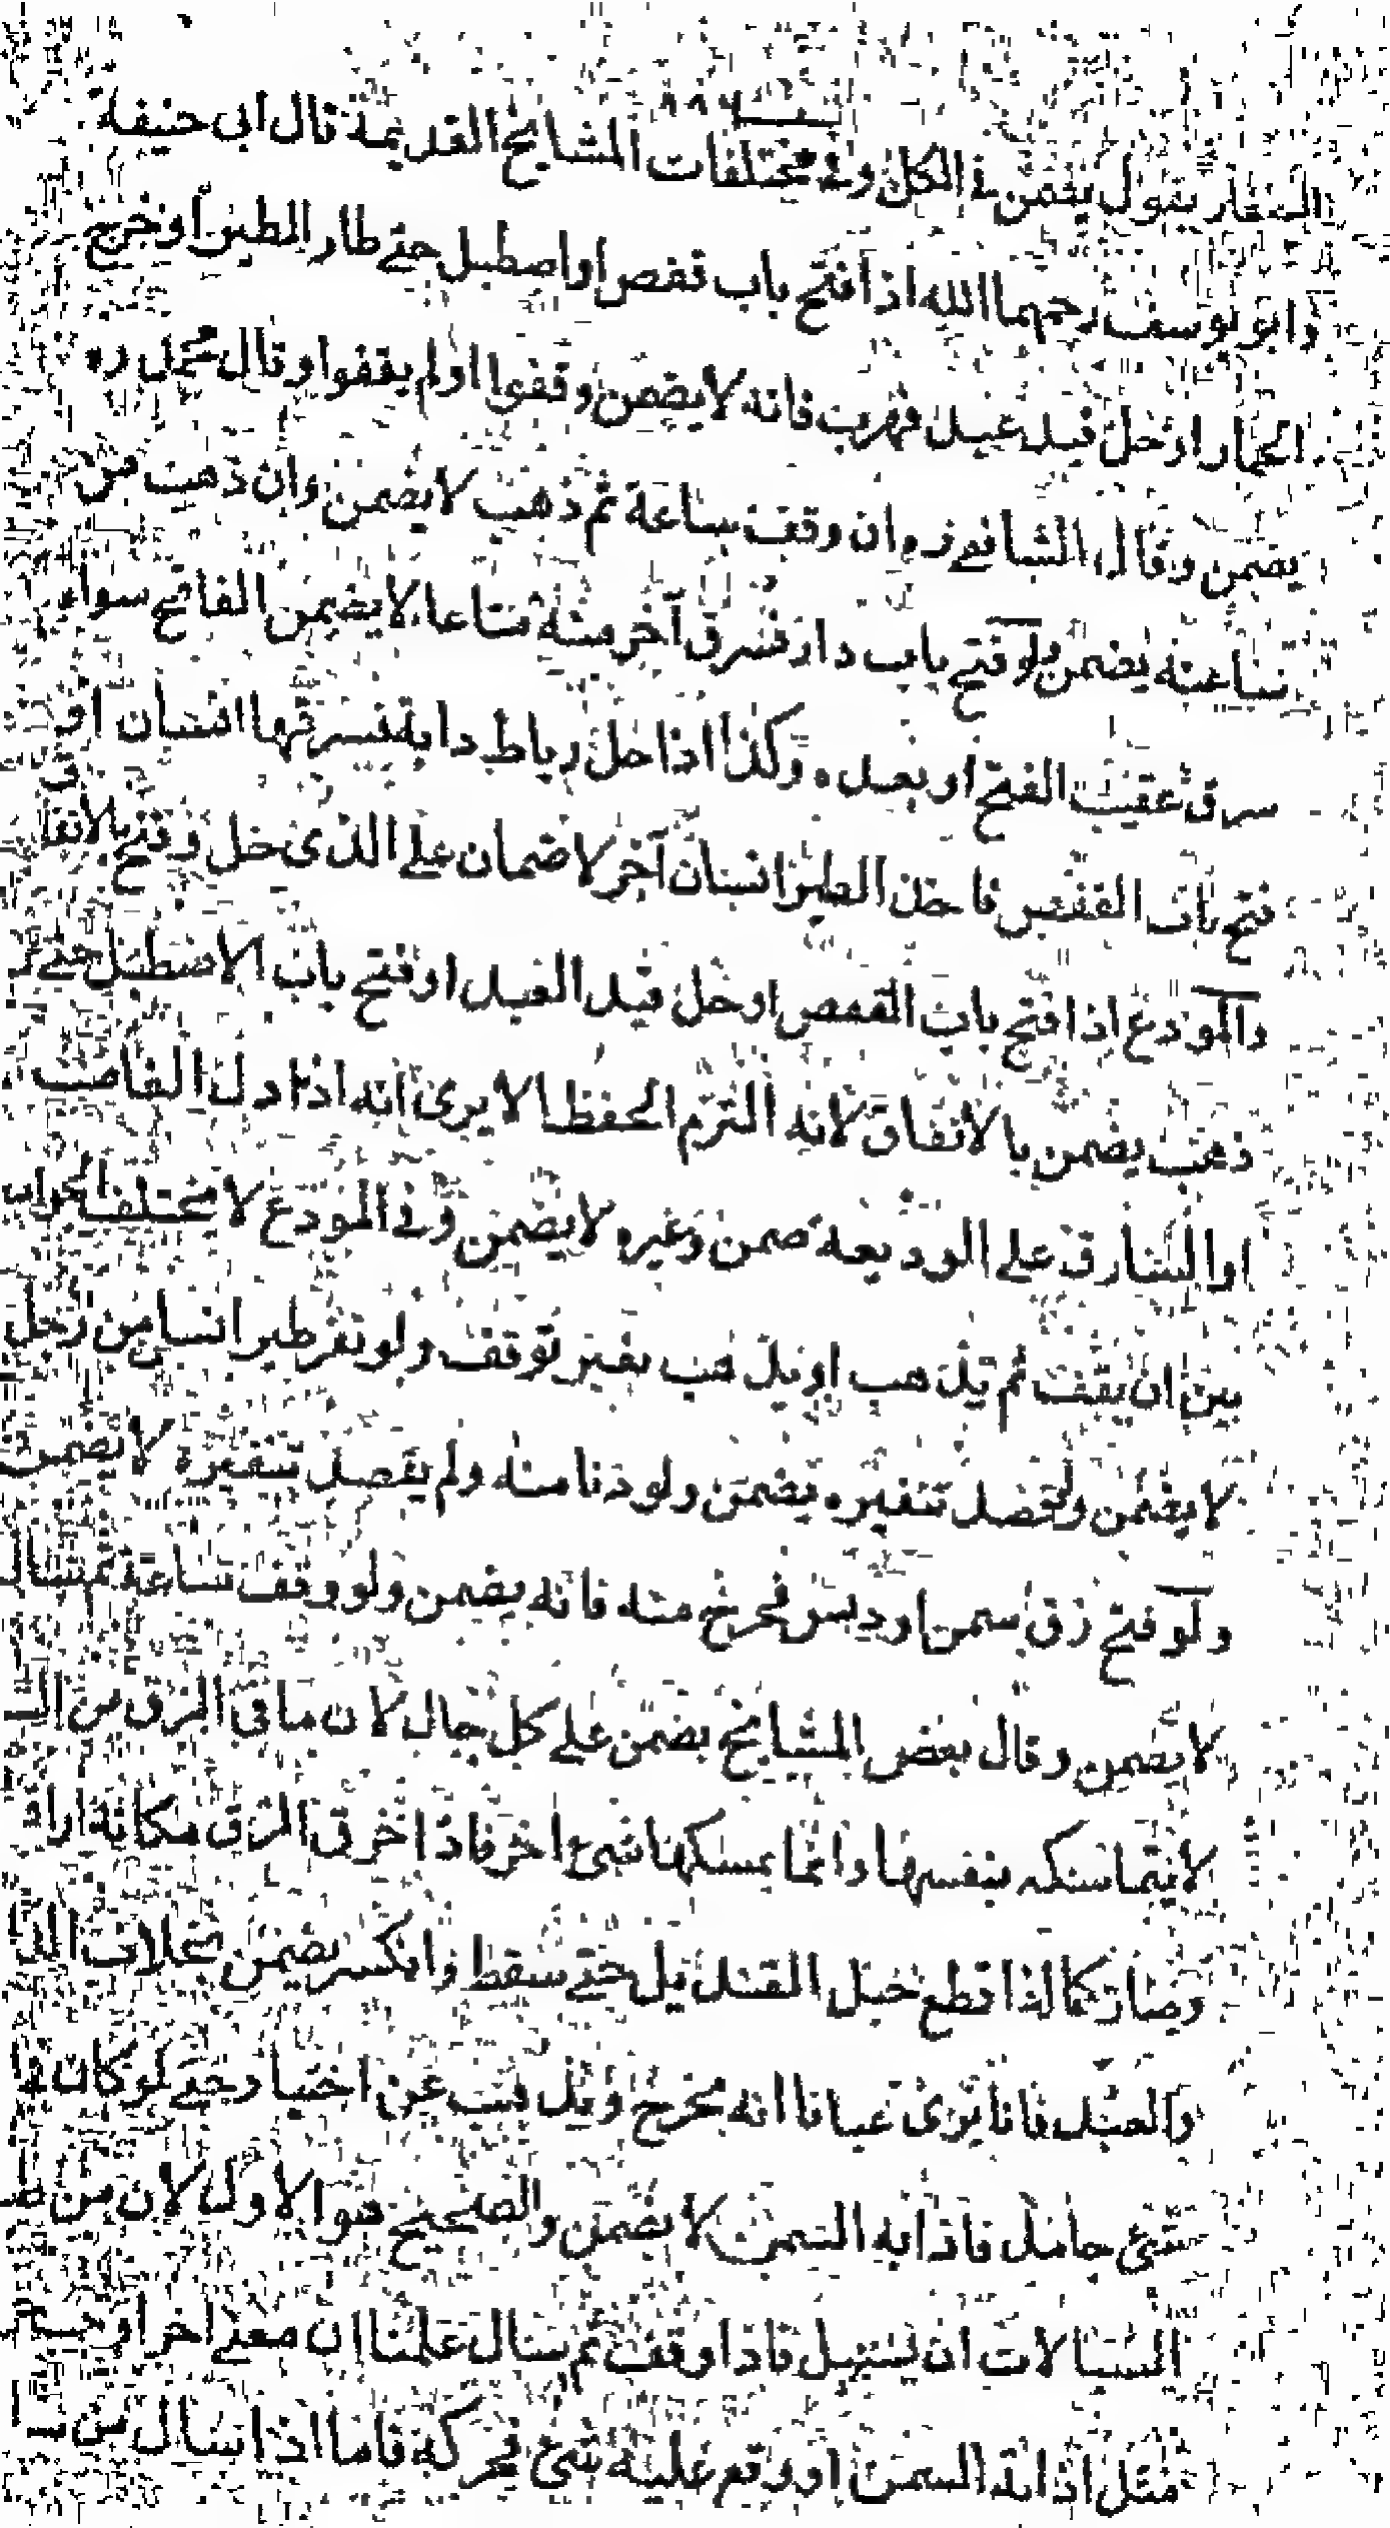 الصفار يقول يضمن في الكل وفي مختلفات المشايخ القديمة قال ابى حنيفة
وابو يوسف رحمهما الله اذا فتح باب قفص او اصطبل حتى طار الطير او خرج
الحمار او حل قيد عبد فهرب فانه لا يضمن وقفوا او لم يقفوا وقال محمد ره
يضمن وقال الشافعى ره ان وقف ساعة ثم ذهب لا يضمن وان ذهب من
ساعته يضمن ولو فتح باب دار فسرق آخر منه متاعا لا يضمن الفاتح سواء
سرق عقيب الفتح او بعده وكذا اذا حل رباط دابة فيسرقها انسان او
فتح باب القفص فاخذ الطير انسان آخر لا ضمان على الذى حل و فتح بلا تفاق
والمودع اذا فتح باب القفص او حل قيد العبد او فتح باب الاصطبل حتى
ذهب يضمن بالاتفاق لانه التزم الحفظ الا يرى انه اذا دل الغاصب
او السارق على الوديعة ضمن وغيره لا يضمن وفي المودع لا مختلف الجواب
بين ان يقف ثم يذهب او يذهب بغير توقف ولو نفر طير انسان من رجل
لا يضمن ولو قصد تنفيره يضمن ولو دنا منه ولم يقصد تنفيره لا يضمن
ولو فتح زق سمن او دبس فخرج منه فانه يضمن ولو وقف ساعة ثم سال
لا يضمن وقال بعض المشايخ يضمن على كل حال لان ما في الزق من
لا يتماسكه بنفسها وانما يمسكها شئ اخر فاذا خرق الزق مكانه
وصار كما اذا قطع حبل القنديل حتى سقط وانكسر يضمن بخلاف
والعبد فانا نرى عيانا انه يخرج ويذهب عن اختيار حتى لو كان
شئ جامد فاذابه الشمس لا يضمن والصحيح هو الاول لان من
السيالات ان يسيل فاذا وقف ثم سال علمنا ان معنى اخر
مثل اذابة الشمس او وقع عليه شئ فحركه فاما اذا سال من